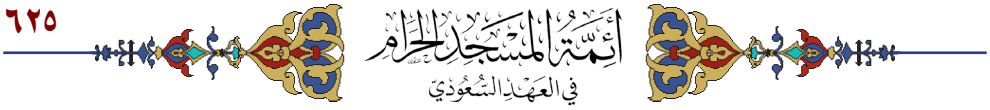 ٦٢٥
أَئِمَّةُ المَسْجِدِ الحَرَامِ
فِي العَهْدِ السُّعُودِيِّ